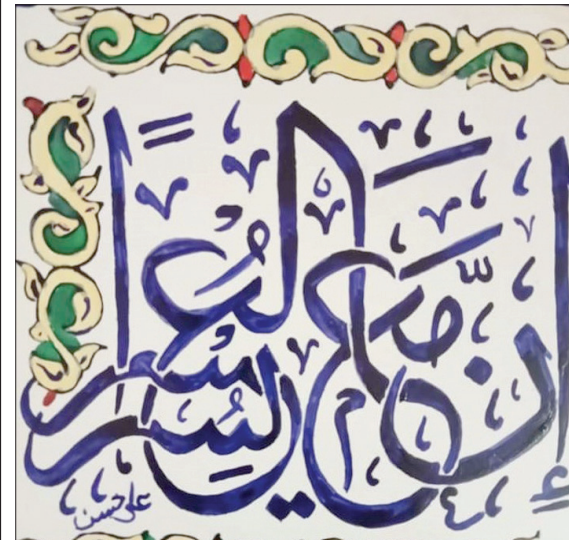 إن مع العسر يسرا
علي حسن